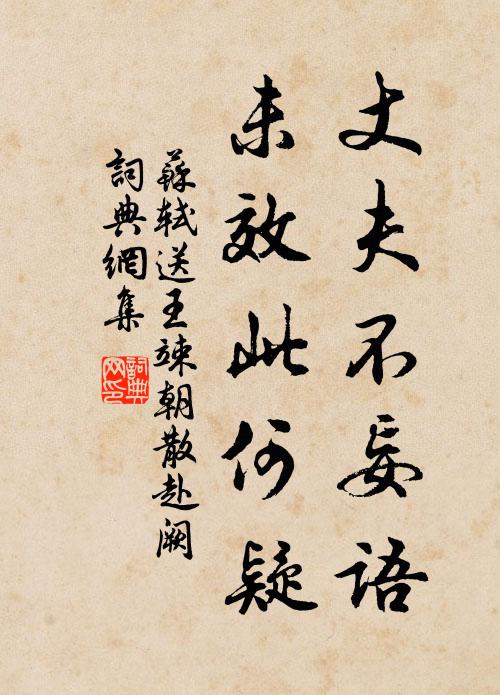 丈夫不妄語
未效此何疑
蘇軾送王竦朝散赴阙
詞典網集
詞典网印